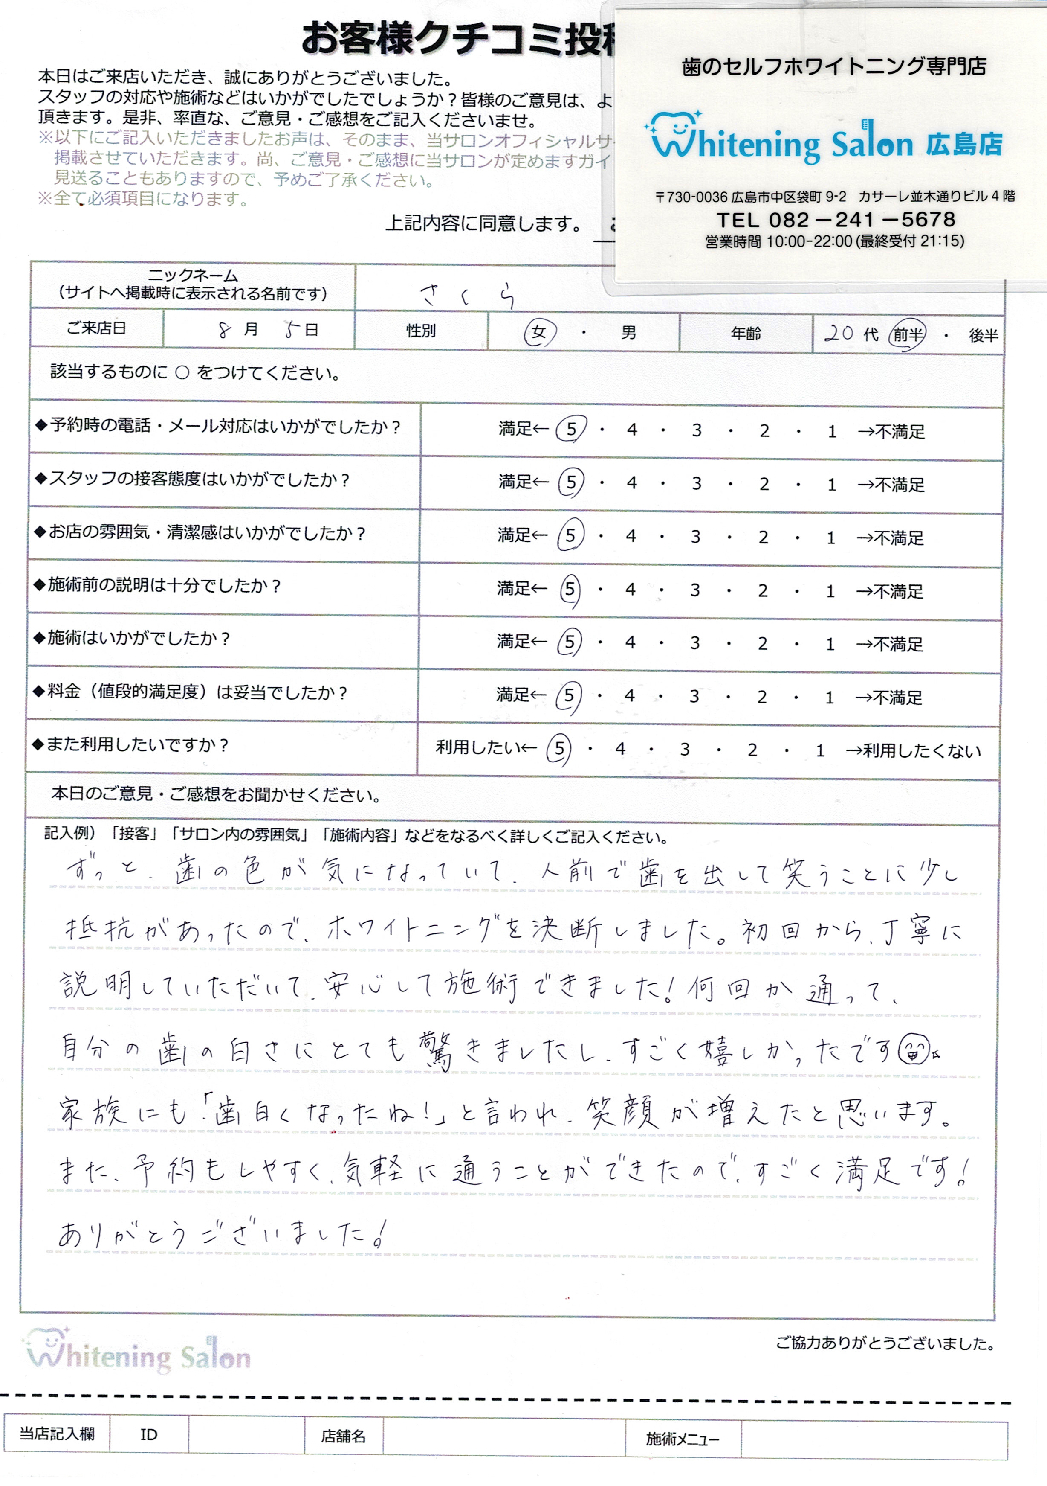 お客様クチコミ投稿
本日はご来店いただき、誠にありがとうございました。
スタッフの対応や施術などはいかがでしたでしょうか？皆様のご意見は、よ
頂きます。是非、率直な、ご意見・ご感想をご記入くださいませ。
※以下にご記入いただきましたお声は、そのまま、当サロンオフィシャルサ
掲載させていただきます。尚、ご意見・ご感想に当サロンが定めますガイ
見送ることもありますので、予めご了承ください。
※全て必須項目になります。
上記内容に同意します。
歯のセルフホワイトニング専門店
Whitening Salon 広島店
〒730-0036 広島市中区袋町 9-2 カサーレ並木通りビル 4 階
TEL 082－241－5678
営業時間 10:00-22:00 (最終受付 21:15)
ニックネーム
（サイトへ掲載時に表示される名前です） さくら
ご来店日 8 月 5 日 性別 女 ・ 男 年齢 20 代 前半 ・ 後半
該当するものに ○ をつけてください。
◆予約時の電話・メール対応はいかがでしたか？ 満足← 5 ・ 4 ・ 3 ・ 2 ・ 1 →不満足
◆スタッフの接客態度はいかがでしたか？ 満足← 5 ・ 4 ・ 3 ・ 2 ・ 1 →不満足
◆お店の雰囲気・清潔感はいかがでしたか？ 満足← 5 ・ 4 ・ 3 ・ 2 ・ 1 →不満足
◆施術前の説明は十分でしたか？ 満足← 5 ・ 4 ・ 3 ・ 2 ・ 1 →不満足
◆施術はいかがでしたか？ 満足← 5 ・ 4 ・ 3 ・ 2 ・ 1 →不満足
◆料金（値段的満足度）は妥当でしたか？ 満足← 5 ・ 4 ・ 3 ・ 2 ・ 1 →不満足
◆また利用したいですか？ 利用したい← 5 ・ 4 ・ 3 ・ 2 ・ 1 →利用したくない
本日のご意見・ご感想をお聞かせください。
記入例）「接客」「サロン内の雰囲気」「施術内容」などをなるべく詳しくご記入ください。
ずっと、歯の色が気になっていて、人前で歯を出して笑うことに少し
抵抗があったので、ホワイトニングを決断しました。初回から、丁寧に
説明していただいて、安心して施術できました！何回か通って、
自分の歯の白さにとても驚きましたし、すごく嬉しかったです
家族にも「歯白くなったね！」と言われ、笑顔が増えたと思います。
また、予約もしやすく、気軽に通うことができたので、すごく満足です！
ありがとうございました！
Whitening Salon
ご協力ありがとうございました。
当店記入欄 ID 店舗名 施術メニュー